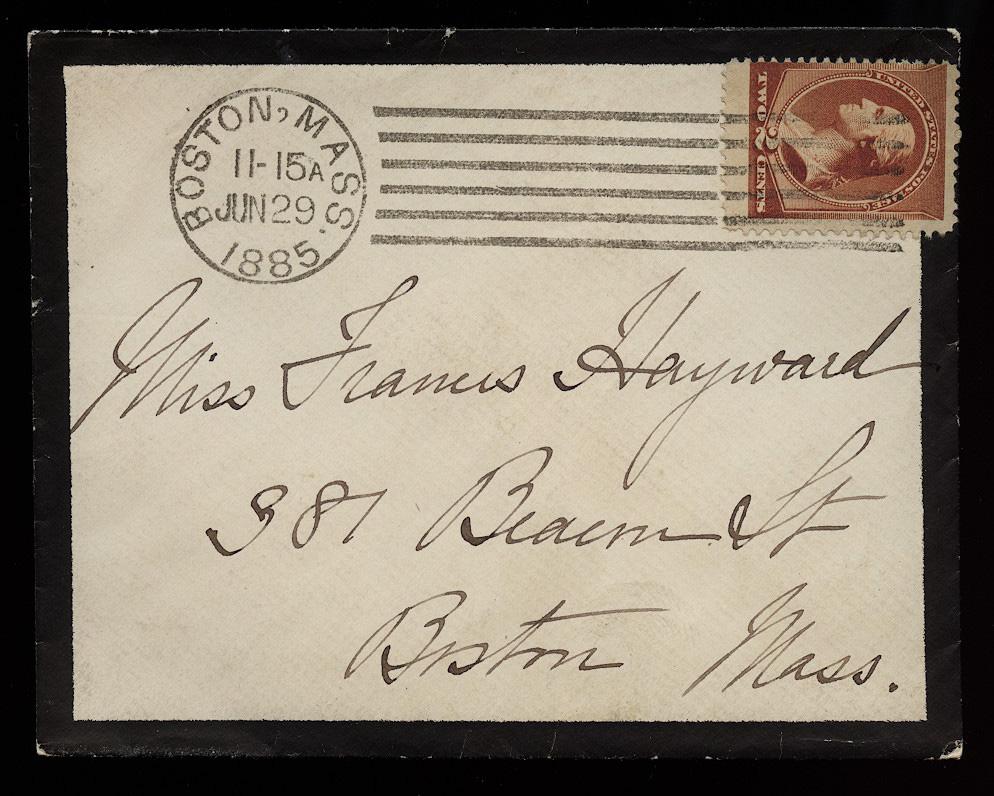 BOSTON, MASS.
11-15A
JUN 29
1885
UNITED STATES POSTAGE
TWO 2 CENTS
Miss Francis Hayward
381 Beacon St
Boston Mass.